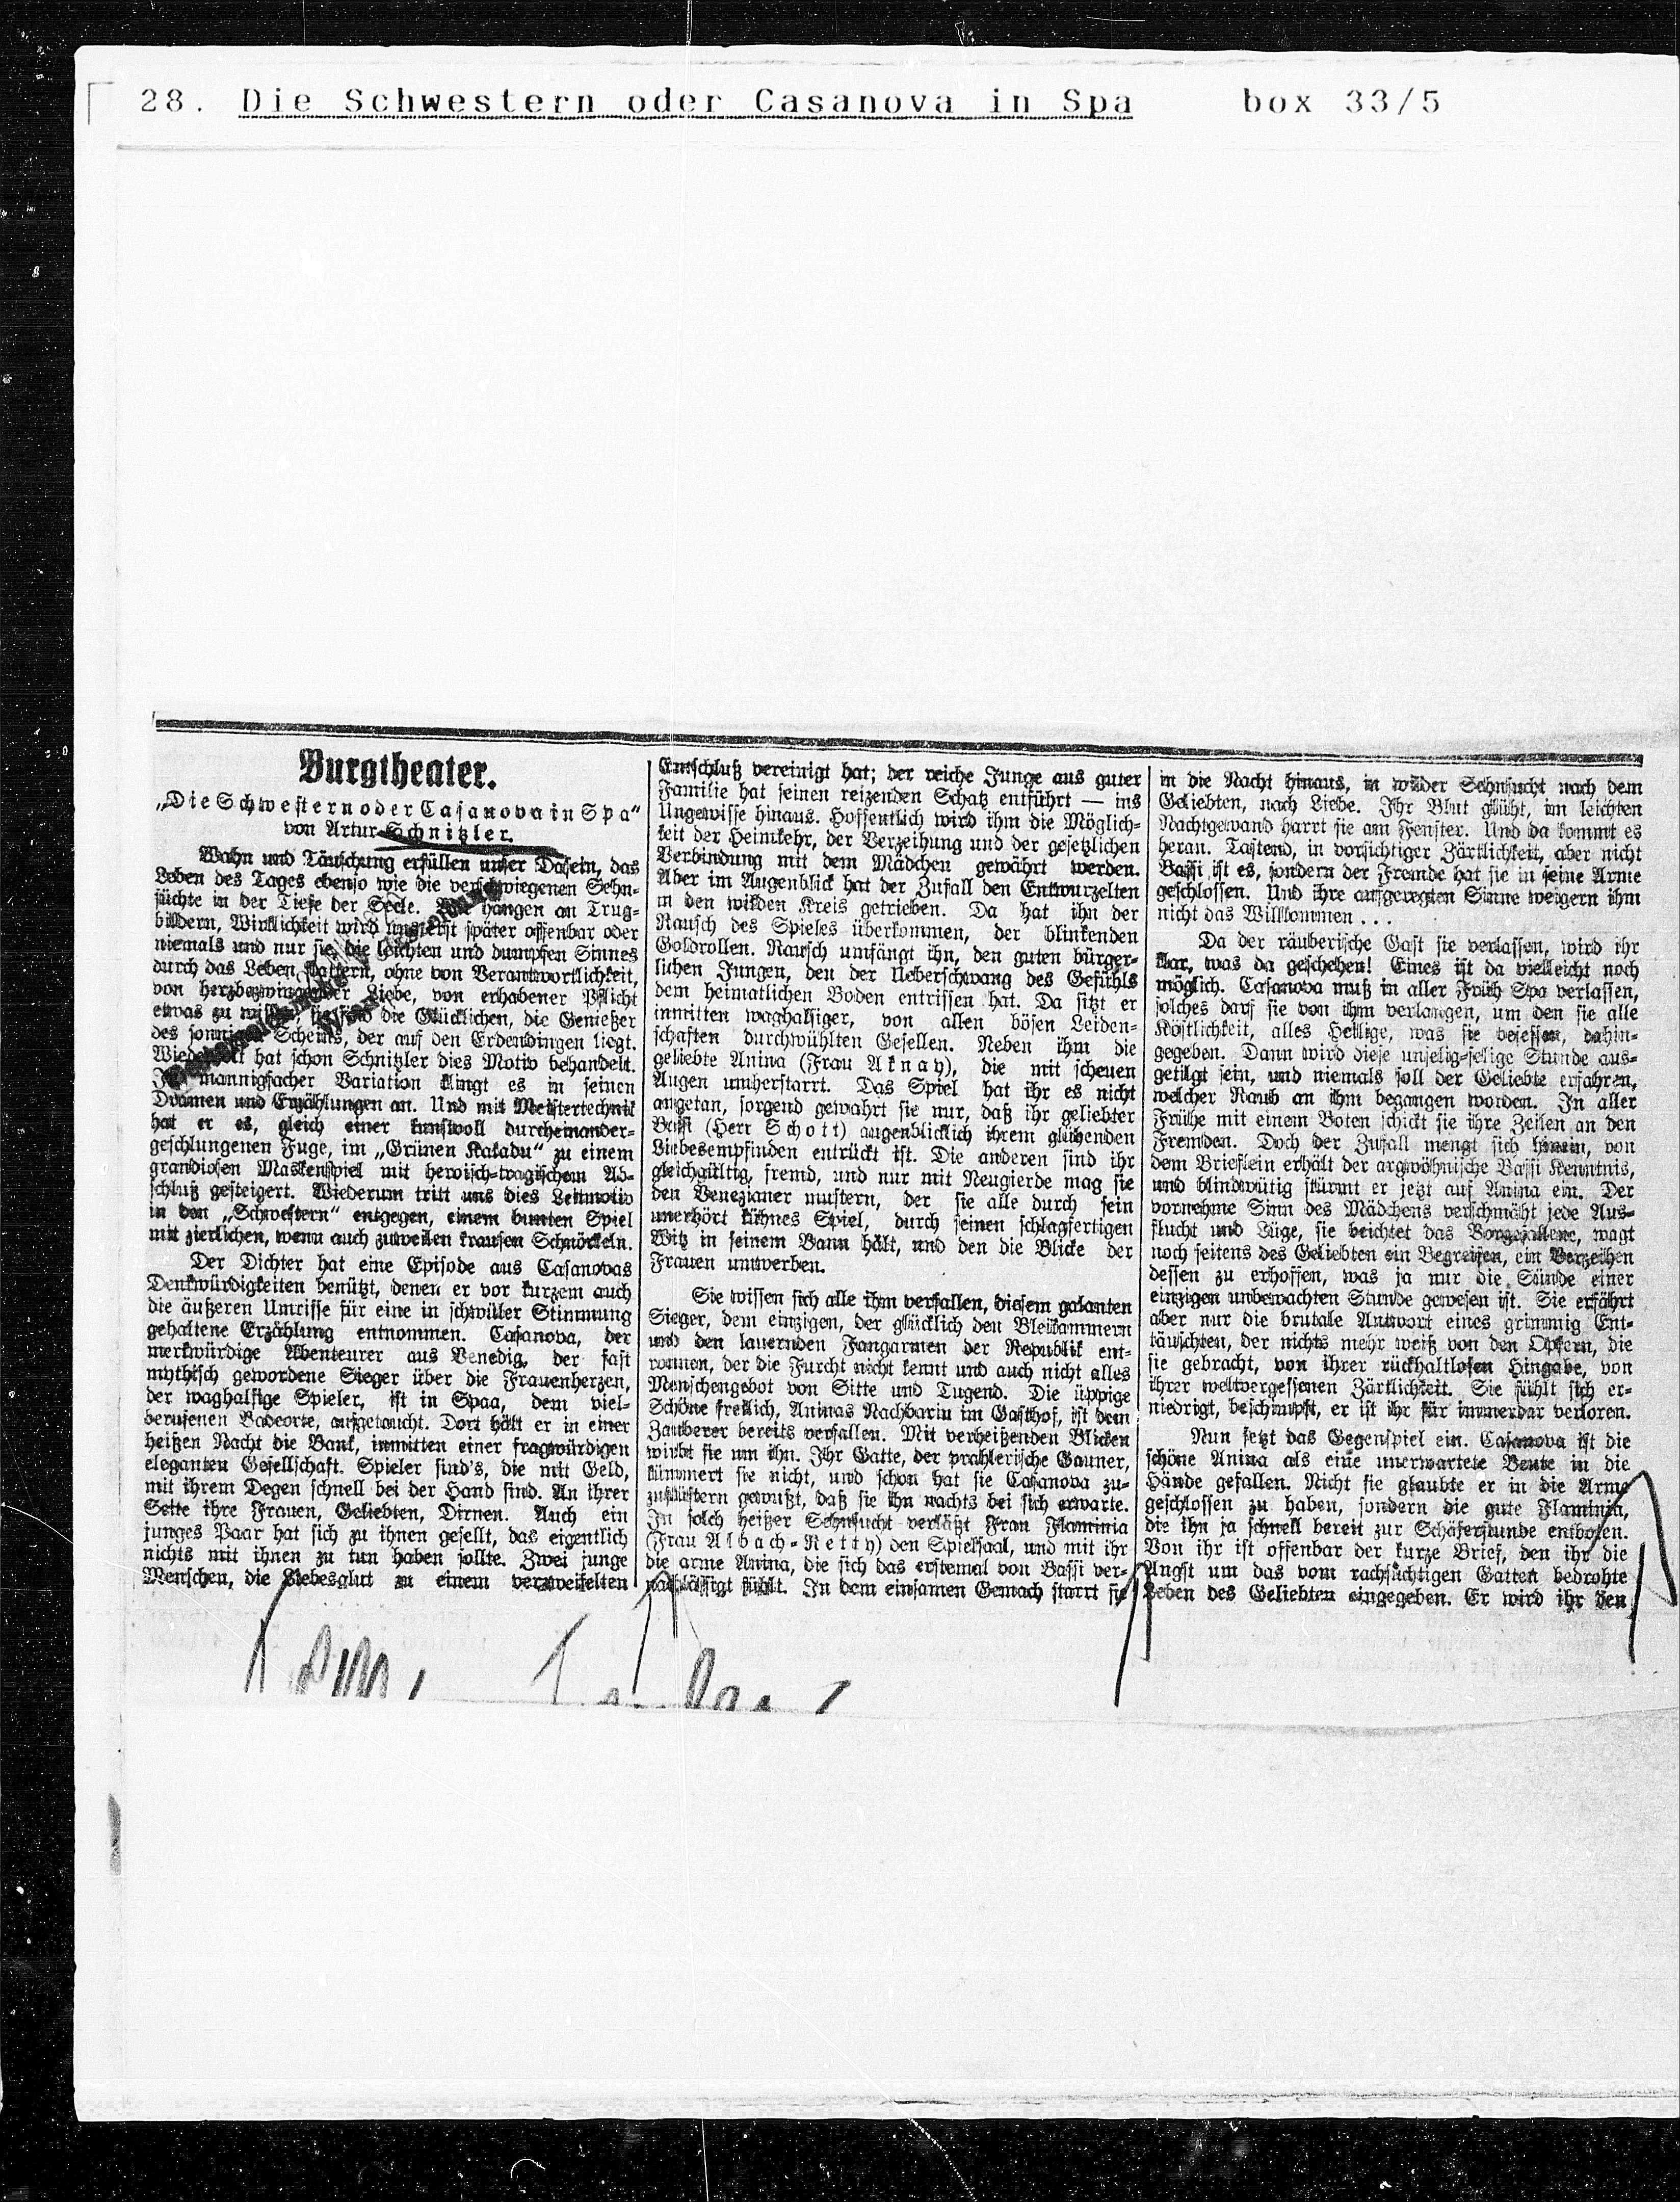 28. Die Schwestern oder Casanova in Spa box 33/5
Burgtheater.
„Die Schwestern oder Casanova in Spa“
von Artur Schnitzler.
Wahn und Täuschung erfüllen unser Dasein, das
Leben des Tages ebenso wie die verschwiegenen Sehn-
süchte in der Tiefe der Seele. Wir hängen an Trug-
bildern, Wirklichkeit wird uns erst später offenbar oder
niemals und nur sie, die leichten und dumpfen Sinnes
durch das Leben flattern, ohne von Verantwortlichkeit,
von herzbezwingender Liebe, von erhabener Pflicht
etwas zu wissen, sie sind die Glücklichen, die Genießer
des sonnigen Scheins, der auf den Erdendingen liegt.
Wiederholt hat schon Schnitzler dies Motiv behandelt.
In mannigfacher Variation klingt es in seinen
Dramen und Erzählungen an. Und mit Meistertechnik
hat er es, gleich einer kunstvoll durcheinander-
geschlungenen Fuge, im „Grünen Kakadu“ zu einem
grandiosen Maskenspiel mit heroisch-tragischem Ab-
schluß gesteigert. Wiederum tritt uns dies Leitmotiv
in den „Schwestern“ entgegen, einem bunten Spiel
mit zierlichen, wenn auch zuweilen krausen Schnörkeln.
Der Dichter hat eine Episode aus Casanovas
Denkwürdigkeiten benützt, denen er vor kurzem auch
die äußeren Umrisse für eine in schwüler Stimmung
gehaltene Erzählung entnommen. Casanova, der
merkwürdige Abenteurer aus Venedig, der fast
mythisch gewordene Sieger über die Frauenherzen,
der waghalsige Spieler, ist in Spaa, dem viel-
berufenen Badeorte, aufgetaucht. Dort hält er in einer
heißen Nacht die Bank, inmitten einer fragwürdigen
eleganten Gesellschaft. Spieler sind's, die mit Geld,
mit ihrem Degen schnell bei der Hand sind. An ihrer
Seite ihre Frauen, Geliebten, Dirnen. Auch ein
junges Paar hat sich zu ihnen gesellt, das eigentlich
nichts mit ihnen zu tun haben sollte. Zwei junge
Menschen, die Liebesglut zu einem verzweifelten
Entschluß vereinigt hat; der reiche Junge aus guter
Familie hat seinen reizenden Schatz entführt — ins
Ungewisse hinaus. Hoffentlich wird ihm die Möglich-
keit der Heimkehr, der Verzeihung und der gesetzlichen
Verbindung mit dem Mädchen gewährt werden.
Aber im Augenblick hat der Zufall den Entwurzelten
in den wilden Kreis getrieben. Da hat ihn der
Rausch des Spieles überkommen, der blinkenden
Goldrollen. Rausch umfängt ihn, den guten bürger-
lichen Jungen, den der Ueberschwang des Gefühls
dem heimatlichen Boden entrissen hat. Da sitzt er
inmitten waghalsiger, von allen bösen Leiden-
schaften durchwühlten Gesellen. Neben ihm die
geliebte Anina (Frau Aknay), die mit scheuen
Augen umherstarrt. Das Spiel hat ihr es nicht
angetan, sorgend gewahrt sie nur, daß ihr geliebter
Bassi (Herr Schott) augenblicklich ihrem glühenden
Liebesempfinden entrückt ist. Die anderen sind ihr
gleichgültig, fremd, und nur mit Neugierde mag sie
den Venezianer mustern, der sie alle durch sein
unerhört kühnes Spiel, durch seinen schlagfertigen
Witz in seinem Bann hält, und den die Blicke der
Frauen umwerben.
Sie wissen sich alle ihm verfallen, diesem galanten
Sieger, dem einzigen, der glücklich den Bleikammern
und den lauernden Fangarmen der Republik ent-
ronnen, der die Furcht nicht kennt und auch nicht alles
Menschengebot von Sitte und Tugend. Die üppige
Schöne freilich, Aninas Nachbarin im Gasthof, ist dem
Zauberer bereits verfallen. Mit verheißenden Blicken
wirbt sie um ihn. Ihr Gatte, der prahlerische Gauner,
kümmert sie nicht, und schon hat sie Casanova zu-
zuflüstern gewußt, daß sie ihn nachts bei sich erwarte.
In solch heißer Sehnsucht verläßt Frau Flaminia
(Frau Albach-Retty) den Spielsaal, und mit ihr
die arme Anina, die sich das erstemal von Bassi ver-
nachlässigt fühlt. In dem einsamen Gemach starrt sie
in die Nacht hinaus, in wilder Sehnsucht nach dem
Geliebten, nach Liebe. Ihr Blut glüht, im leichten
Nachtgewand harrt sie am Fenster. Und da kommt es
heran. Tastend, in vorsichtiger Zärtlichkeit, aber nicht
Bassi ist es, sondern der Fremde hat sie in seine Arme
geschlossen. Und ihre aufgeregten Sinne weigern ihm
nicht das Willkommen . . .
Da der räuberische Gast sie verlassen, wird ihr
klar, was da geschehen! Eines ist da vielleicht noch
möglich. Casanova muß in aller Früh Spa verlassen,
solches darf sie von ihm verlangen, um den sie alle
Köstlichkeit, alles Heilige, was sie besessen, dahin-
gegeben. Dann wird diese unselig-selige Stunde aus-
getilgt sein, und niemals soll der Geliebte erfahren,
welcher Raub an ihm begangen worden. In aller
Frühe mit einem Boten schickt sie ihre Zeilen an den
Fremden. Doch der Zufall mengt sich hinein, von
dem Brieflein erhält der argwöhnische Bassi Kenntnis,
und blindwütig stürmt er jetzt auf Anina ein. Der
vornehme Sinn des Mädchens verschmäht jede Aus-
flucht und Lüge, sie beichtet das Vorgefallene, wagt
noch seitens des Geliebten ein Begreifen, ein Verzeihen
dessen zu erhoffen, was ja nur die Sünde einer
einzigen unbewachten Stunde gewesen ist. Sie erfährt
aber nur die brutale Antwort eines grimmig Ent-
täuschten, der nichts mehr weiß von den Opfern, die
sie gebracht, von ihrer rückhaltlosen Hingabe, von
ihrer weltvergessenen Zärtlichkeit. Sie fühlt sich er-
niedrigt, beschimpft, er ist ihr für immerdar verloren.
Nun setzt das Gegenspiel ein. Casanova ist die
schöne Anina als eine unerwartete Beute in die
Hände gefallen. Nicht sie glaubte er in die Arme
geschlossen zu haben, sondern die gute Flaminia,
die ihn ja schnell bereit zur Schäferstunde entboten.
Von ihr ist offenbar der kurze Brief, den ihr die
Angst um das vom rachsüchtigen Gatten bedrohte
Leben des Geliebten eingegeben. Er wird ihr den